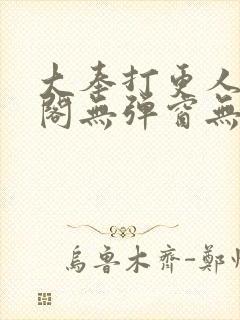 大奉打更人
閣無彈窗無
烏魯木齊-鄭州